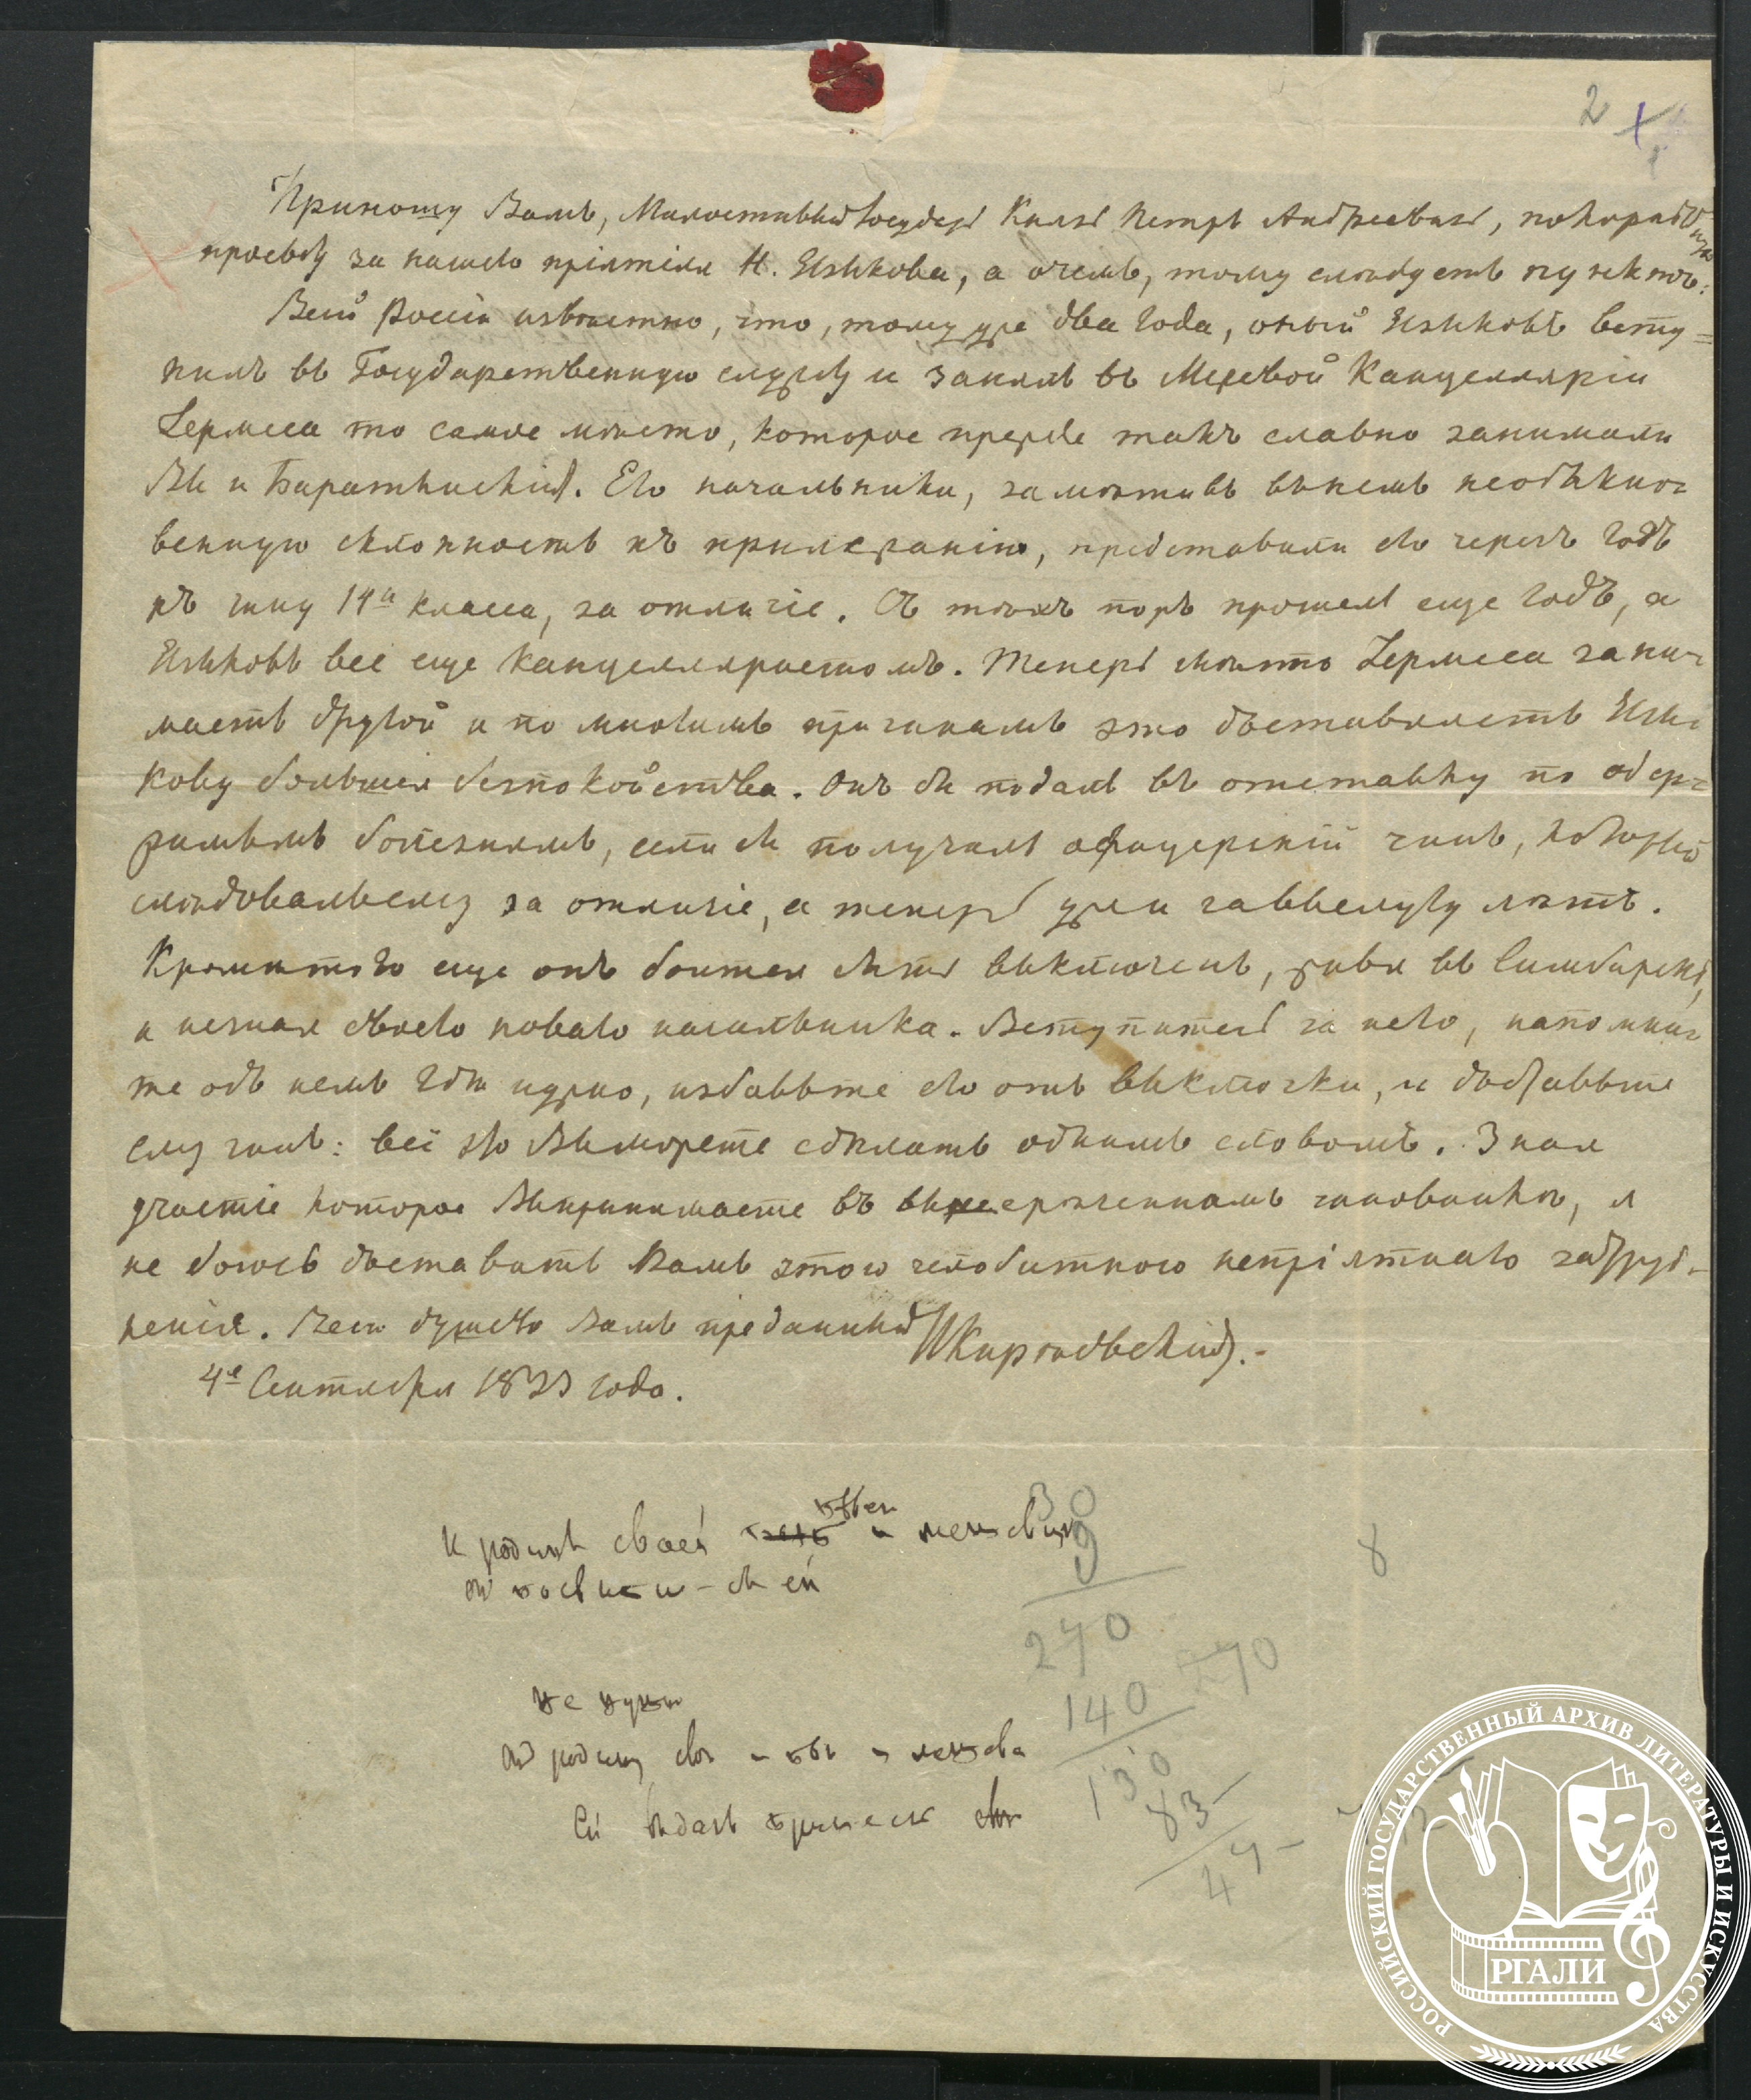 2
Приношу Вамъ, Милостивый Государь Князь Петръ Андреевичь, покорнѣйшую
просьбу за нашего пріятеля Н. Языкова, а о чемъ, тому слѣдуетъ пунктъ:
Всей Россіи извѣстно, что, тому уже два года, оный Языковъ всту=
пилъ въ Государственную службу и занялъ въ Межевой Канцелляріи
Гермеса то самое мѣсто, которое прежде такъ славно занимали
Вы и Баратынскій. Его начальники, замѣтивъ въ немъ необыкно=
венную склонность къ прилежанію, представили его черезъ годъ
къ чину 14го класса, за отличіе. Съ тѣхъ поръ прошелъ еще годъ, а
Языковъ всё еще канцелляристомъ. Теперь мѣсто Гермеса зани=
маетъ другой и по многимъ причинамъ это доставляетъ Язы=
кову большія безпокойства. Онъ бы подалъ въ отставку по одер=
жимымъ болѣзнямъ, если бы получилъ офицерскій чинъ, который
слѣдовалъ ему за отличіе, а теперь уже и за выслугу лѣтъ.
Кромѣ того еще онъ боится быть выключенъ, живя въ Симбирскѣ,
и не зная своего новаго начальника. Вступитесь за него, напомни=
те объ немъ гдѣ нужно, избавьте его отъ выключки, и доставьте
ему чинъ: всё это Вы можете сдѣлать однимъ словомъ. Зная
участіе которое Вы принимаете въ вышереченномъ чиновникѣ, я
не боюсь доставить Вамъ этою челобитною непріятнаго затруд=
ненія. Весь душево Вамъ преданный И Кирѣевскій.
4е Сентября 1833 года.
30
К родинѣ своей и
9
8
270
270
140
не нужн
родину
130
83
47
Ей
РОССИЙСКИЙ ГОСУДАРСТВЕННЫЙ АРХИВ ЛИТЕРАТУРЫ И ИСКУССТВА
РГАЛИ